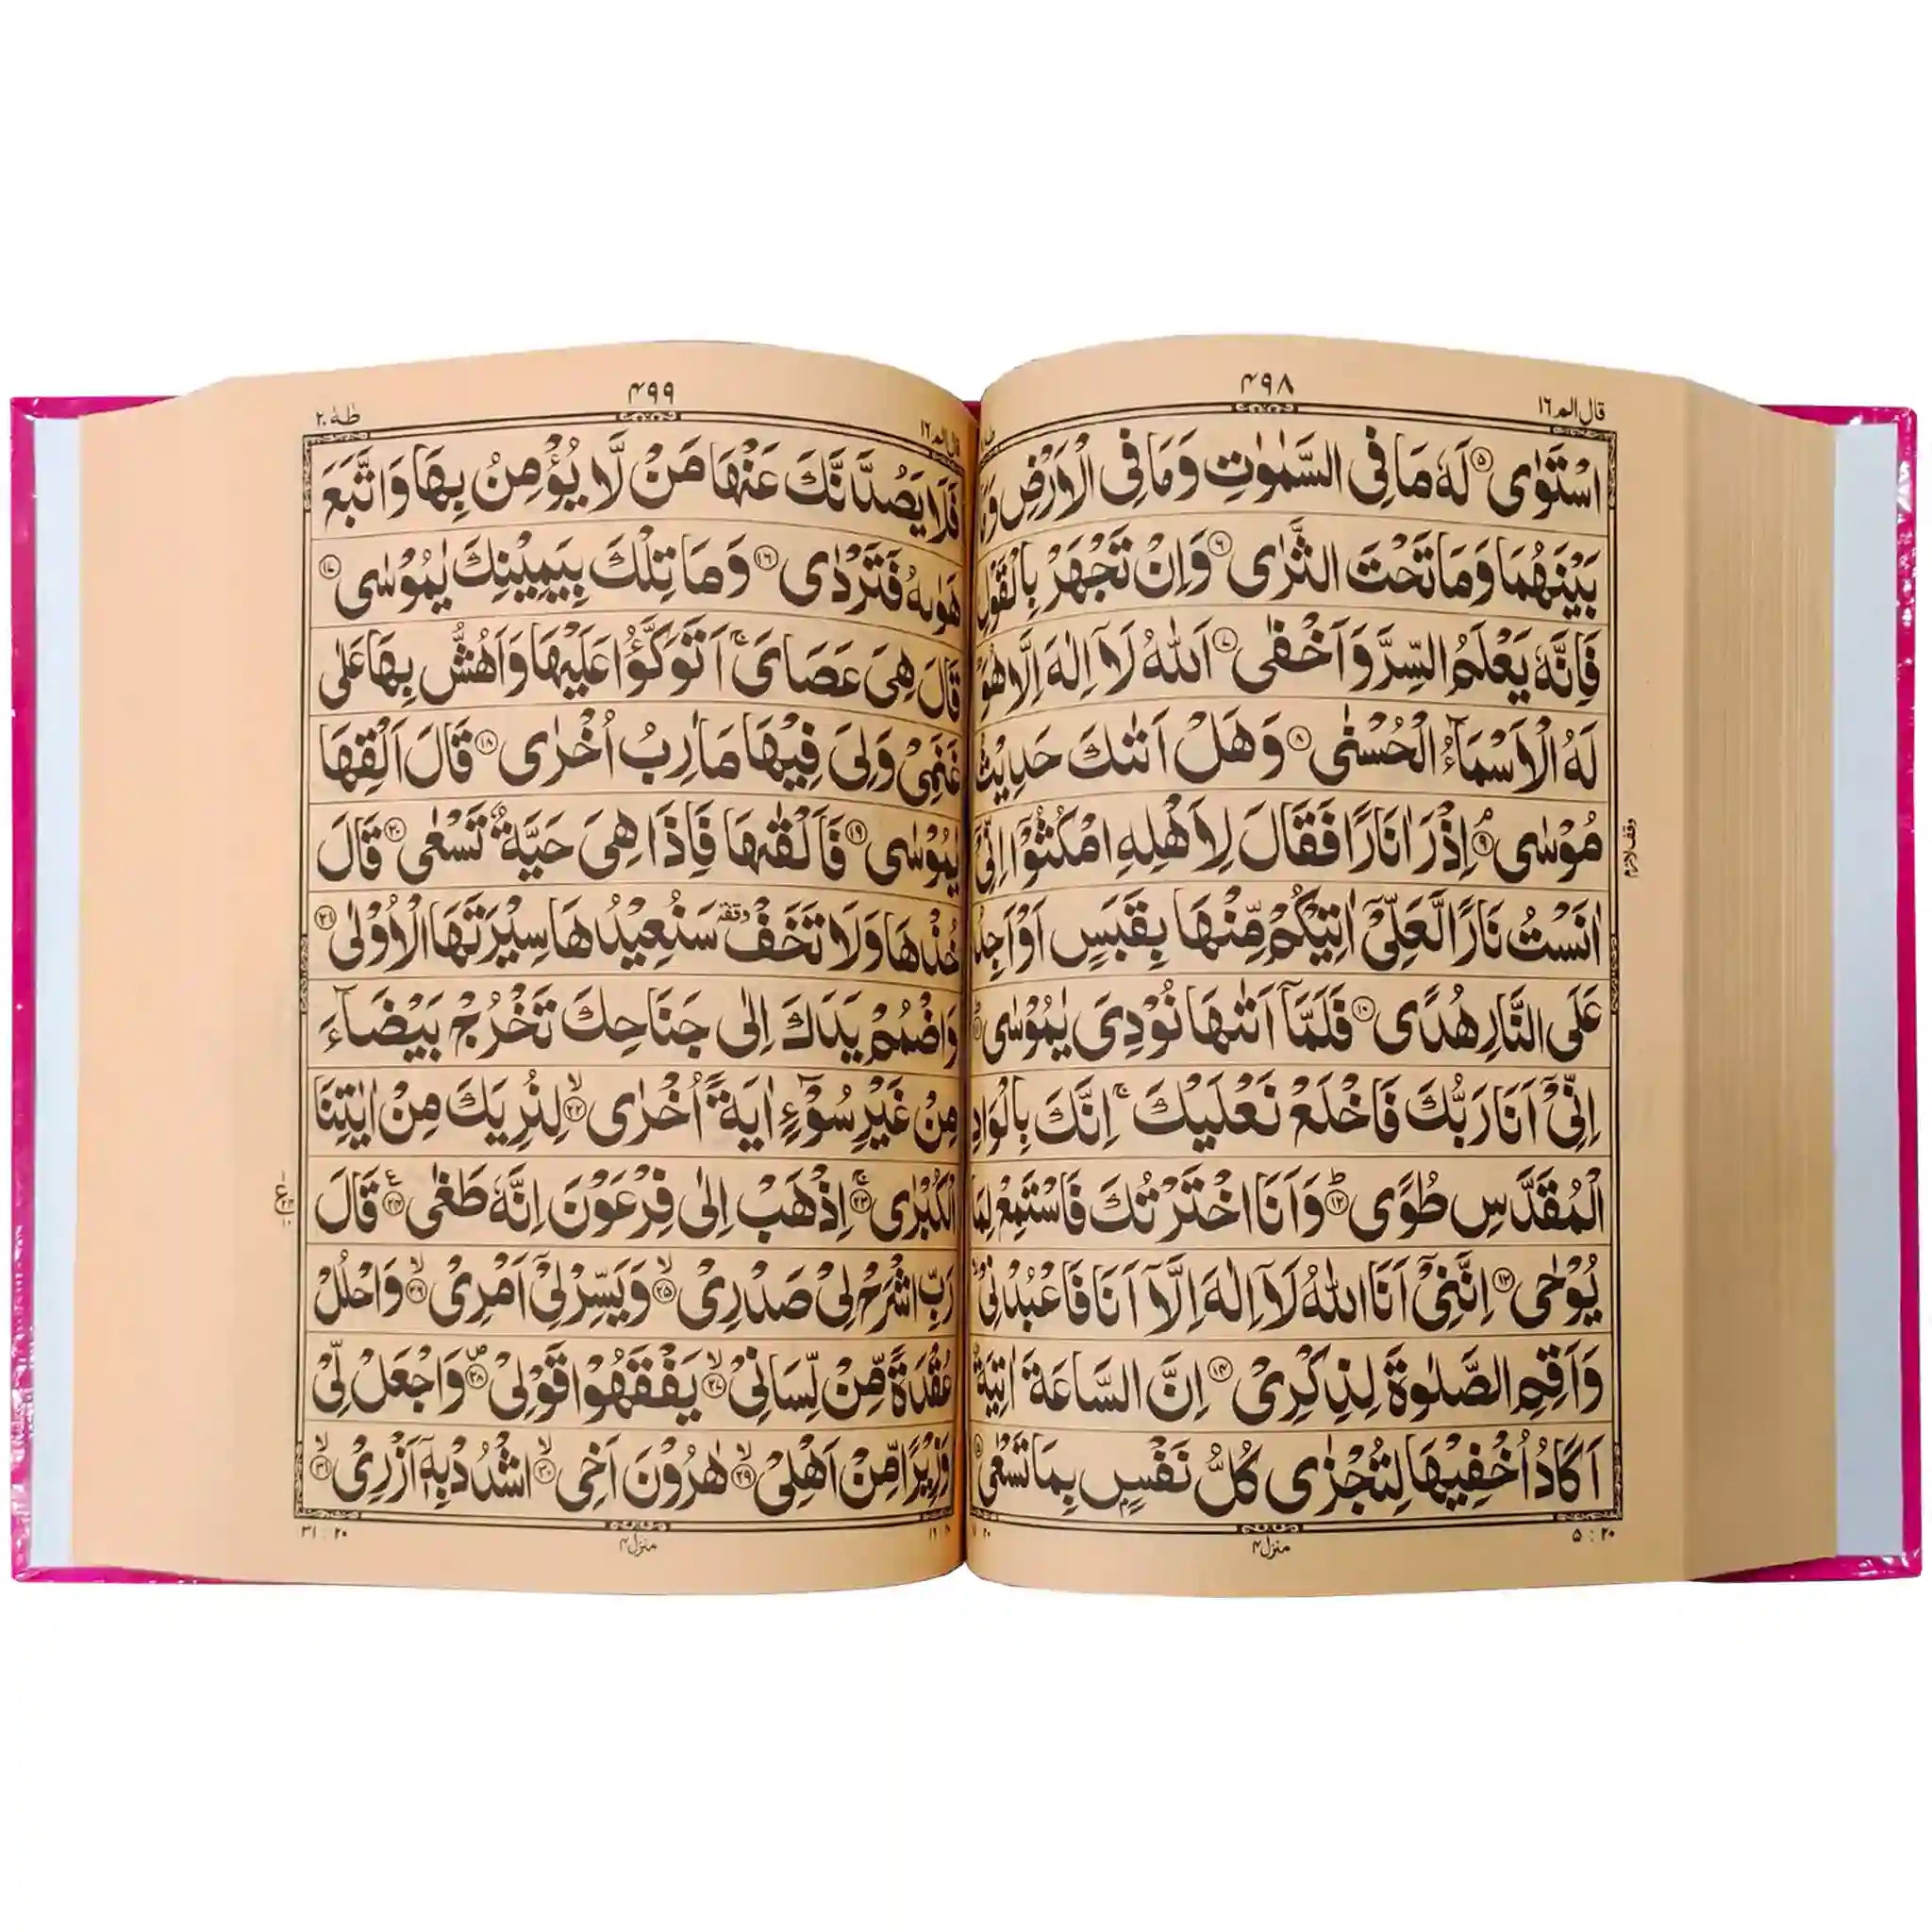 قال الم ١٦
۴۹۸
اسْتَوٰى ۝۵ لَهٗ مَا فِى السَّمٰوٰتِ وَمَا فِى الْاَرْضِ
بَيْنَهُمَا وَمَا تَحْتَ الثَّرٰى ۝۶ وَاِنْ تَجْهَرْ بِالْقَوْلِ
فَاِنَّهٗ يَعْلَمُ السِّرَّ وَاَخْفٰى ۝۷ اَللّٰهُ لَاۤ اِلٰهَ اِلَّا هُوَ
لَهُ الْاَسْمَآءُ الْحُسْنٰى ۝۸ وَهَلْ اَتٰىكَ حَدِيْثُ
مُوْسٰى ۝۹ اِذْ رَاٰ نَارًا فَقَالَ لِاَهْلِهِ امْكُثُوْۤا اِنِّىْۤ
اٰنَسْتُ نَارًا لَّعَلِّىْۤ اٰتِيْكُمْ مِّنْهَا بِقَبَسٍ اَوْ اَجِدُ
عَلَى النَّارِ هُدًى ۝۱۰ فَلَمَّاۤ اَتٰىهَا نُوْدِىَ يٰمُوْسٰى ۝۱۱
اِنِّىْۤ اَنَا رَبُّكَ فَاخْلَعْ نَعْلَيْكَ ۚ اِنَّكَ بِالْوَادِ
الْمُقَدَّسِ طُوًى ۝۱۲ وَاَنَا اخْتَرْتُكَ فَاسْتَمِعْ لِمَا
يُوْحٰى ۝۱۳ اِنَّنِىْۤ اَنَا اللّٰهُ لَاۤ اِلٰهَ اِلَّاۤ اَنَا فَاعْبُدْنِىْ
وَاَقِمِ الصَّلٰوةَ لِذِكْرِىْ ۝۱۴ اِنَّ السَّاعَةَ اٰتِيَةٌ
اَكَادُ اُخْفِيْهَا لِتُجْزٰى كُلُّ نَفْسٍۭ بِمَا تَسْعٰى ۝۱۵
وقف لازم
منزل ۴
۲۰ : ۵
طٰهٰ ۲۰
۴۹۹
قال الم ١٦
فَلَا يَصُدَّنَّكَ عَنْهَا مَنْ لَّا يُؤْمِنُ بِهَا وَاتَّبَعَ
هَوٰىهُ فَتَرْدٰى ۝۱۶ وَمَا تِلْكَ بِيَمِيْنِكَ يٰمُوْسٰى ۝۱۷
قَالَ هِىَ عَصَاىَ ۚ اَتَوَكَّؤُا عَلَيْهَا وَاَهُشُّ بِهَا عَلٰى
غَنَمِىْ وَلِىَ فِيْهَا مَاٰرِبُ اُخْرٰى ۝۱۸ قَالَ اَلْقِهَا
يٰمُوْسٰى ۝۱۹ فَاَلْقٰىهَا فَاِذَا هِىَ حَيَّةٌ تَسْعٰى ۝۲۰ قَالَ
خُذْهَا وَلَا تَخَفْ وقفة سَنُعِيْدُهَا سِيْرَتَهَا الْاُوْلٰى ۝۲۱
وَاضْمُمْ يَدَكَ اِلٰى جَنَاحِكَ تَخْرُجْ بَيْضَآءَ
مِنْ غَيْرِ سُوْٓءٍ اٰيَةً اُخْرٰى ۝۲۲ لِنُرِيَكَ مِنْ اٰيٰتِنَا
الْكُبْرٰى ۝۲۳ اِذْهَبْ اِلٰى فِرْعَوْنَ اِنَّهٗ طَغٰى ۝۲۴ قَالَ
رَبِّ اشْرَحْ لِىْ صَدْرِىْ ۝۲۵ وَيَسِّرْ لِىْۤ اَمْرِىْ ۝۲۶ وَاحْلُلْ
عُقْدَةً مِّنْ لِّسَانِىْ ۝۲۷ يَفْقَهُوْا قَوْلِىْ ۝۲۸ وَاجْعَلْ لِّىْ
وَزِيْرًا مِّنْ اَهْلِىْ ۝۲۹ هٰرُوْنَ اَخِى ۝۳۰ اشْدُدْ بِهٖۤ اَزْرِىْ ۝۳۱
منزل ۴
۲۰ : ۳۱